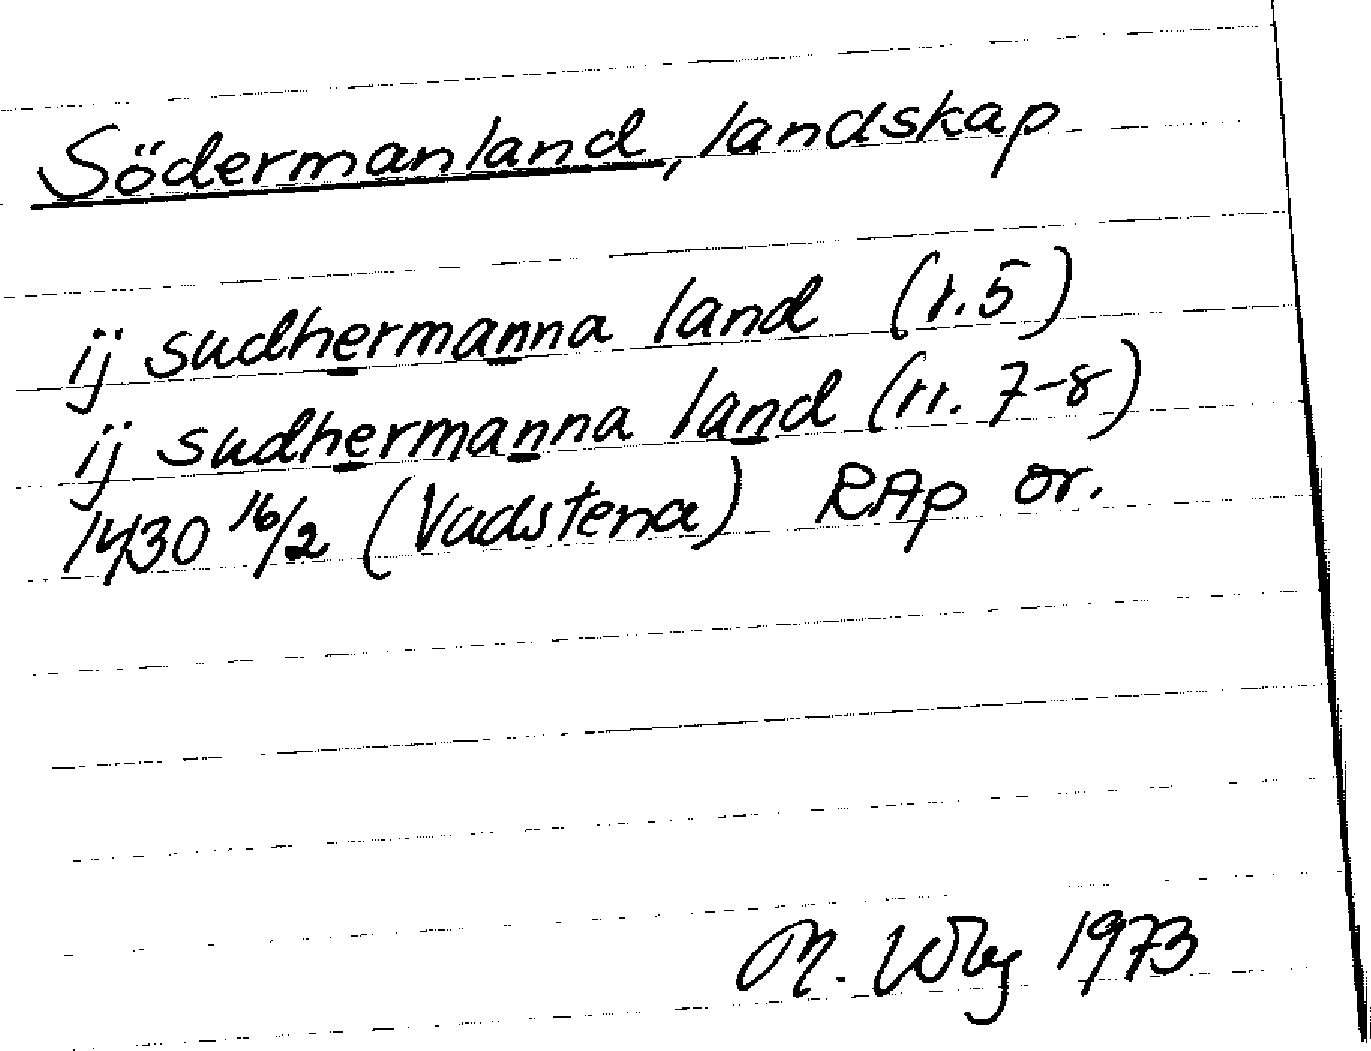 Södermanland, landskap
ij sudhermanna land (r.5)
ij sudhermanna land (rr. 7-8)
1430 16/2 (Vadstena) RAp or.
M. Wbg 1973